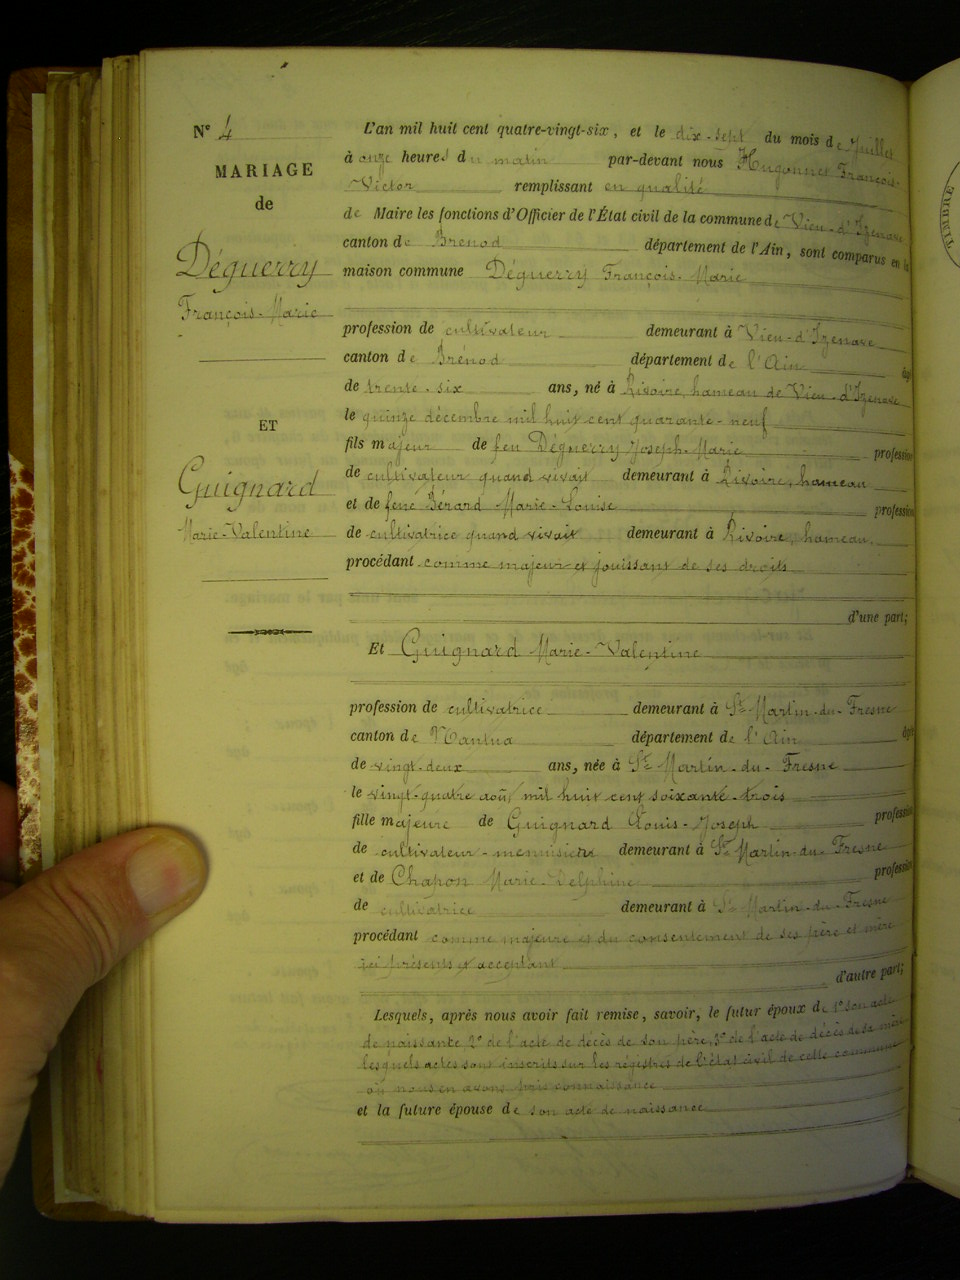 N° 4
MARIAGE
de
Déguerry
François-Marie
ET
Guignard
Marie-Valentine
L'an mil huit cent quatre-vingt-six, et le dix-sept du mois de Juillet
à onze heures du matin par-devant nous Hugonnet François-
Victor remplissant en qualité
de Maire les fonctions d'Officier de l'État civil de la commune de Vieu-d'Izenave
canton de Brénod département de l'Ain, sont comparus en la
maison commune Déguerry François-Marie
profession de cultivateur demeurant à Vieu-d'Izenave
canton de Brénod département de l'Ain âgé
de trente-six ans, né à Rivoire, hameau de Vieu-d'Izenave
le quinze décembre mil huit cent quarante-neuf
fils majeur de feu Déguerry Joseph-Marie profession
de cultivateur quand vivait demeurant à Rivoire, hameau
et de feue Bérard Marie-Louise profession
de cultivatrice quand vivait demeurant à Rivoire, hameau,
procédant comme majeur et jouissant de ses droits
d'une part;
Et Guignard Marie-Valentine
profession de cultivatrice demeurant à St-Martin-du-Fresne
canton de Nantua département de l'Ain âgée
de vingt-deux ans, née à St-Martin-du-Fresne
le vingt-quatre août mil huit cent soixante-trois
fille majeure de Guignard Louis-Joseph profession
de cultivateur-menuisier demeurant à St-Martin-du-Fresne
et de Chapon Marie-Delphine profession
de cultivatrice demeurant à St-Martin-du-Fresne
procédant comme majeure et du consentement de ses père et mère
ici présents et acceptant
d'autre part;
Lesquels, après nous avoir fait remise, savoir, le futur époux de 1° son acte
de naissance, 2° de l'acte de décès de son père, 3° de l'acte de décès de sa mère
lesquels actes sont inscrits sur les régistres de l'état civil de cette commune
où nous en avons pris connaissance
et la future épouse de son acte de naissance
TIMBRE